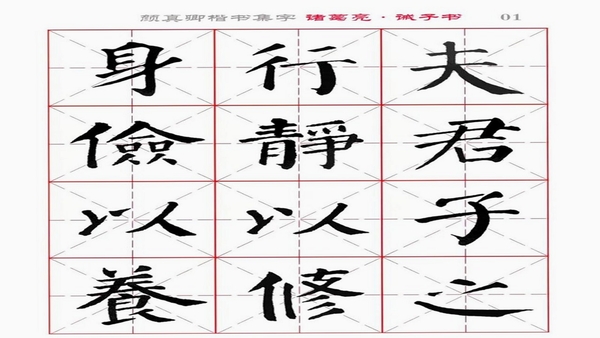 颜真卿楷书集字 诸葛亮·诫子书 01
夫君子之
行靜以修
身儉以養